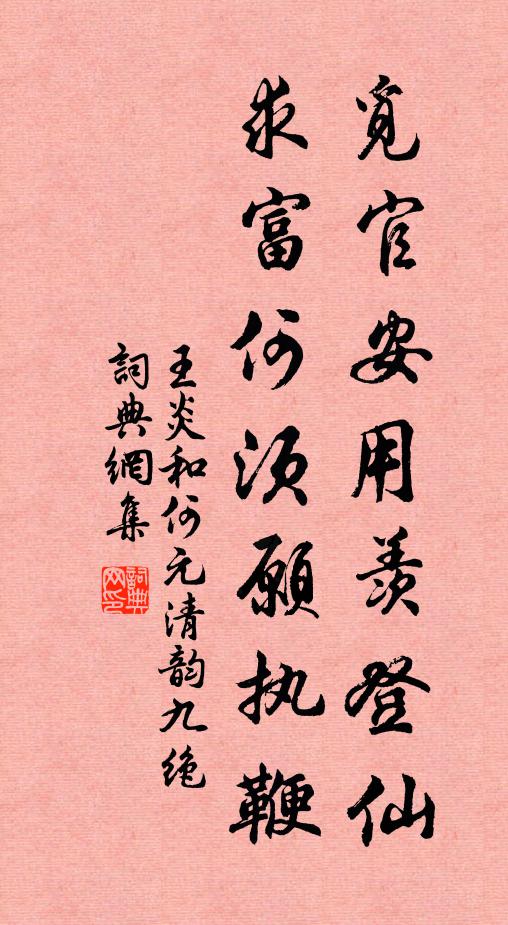 覓官安用羨登仙
求富何須願执鞭
王炎和何元清韵九绝
詞典網集
詞典网印